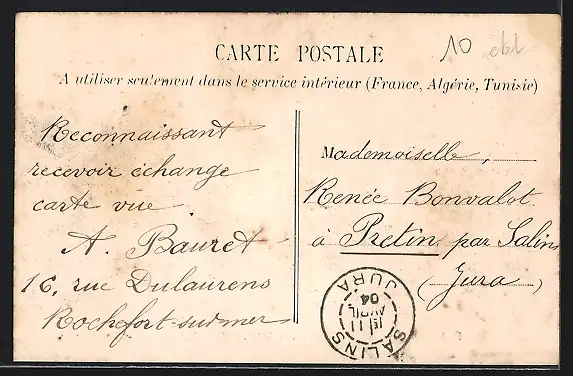 CARTE POSTALE
10
A utiliser seulement dans le service intérieur (France, Algérie, Tunisie)
Reconnaissant
recevoir échange
carte vue
A. Bauret
16, rue Dulaurens
Rochefort-sur-mer
Mademoiselle,
Renée Bonvalot
à Pretin par Salins
(Jura)
SALINS
11
AVRIL
04
JURA